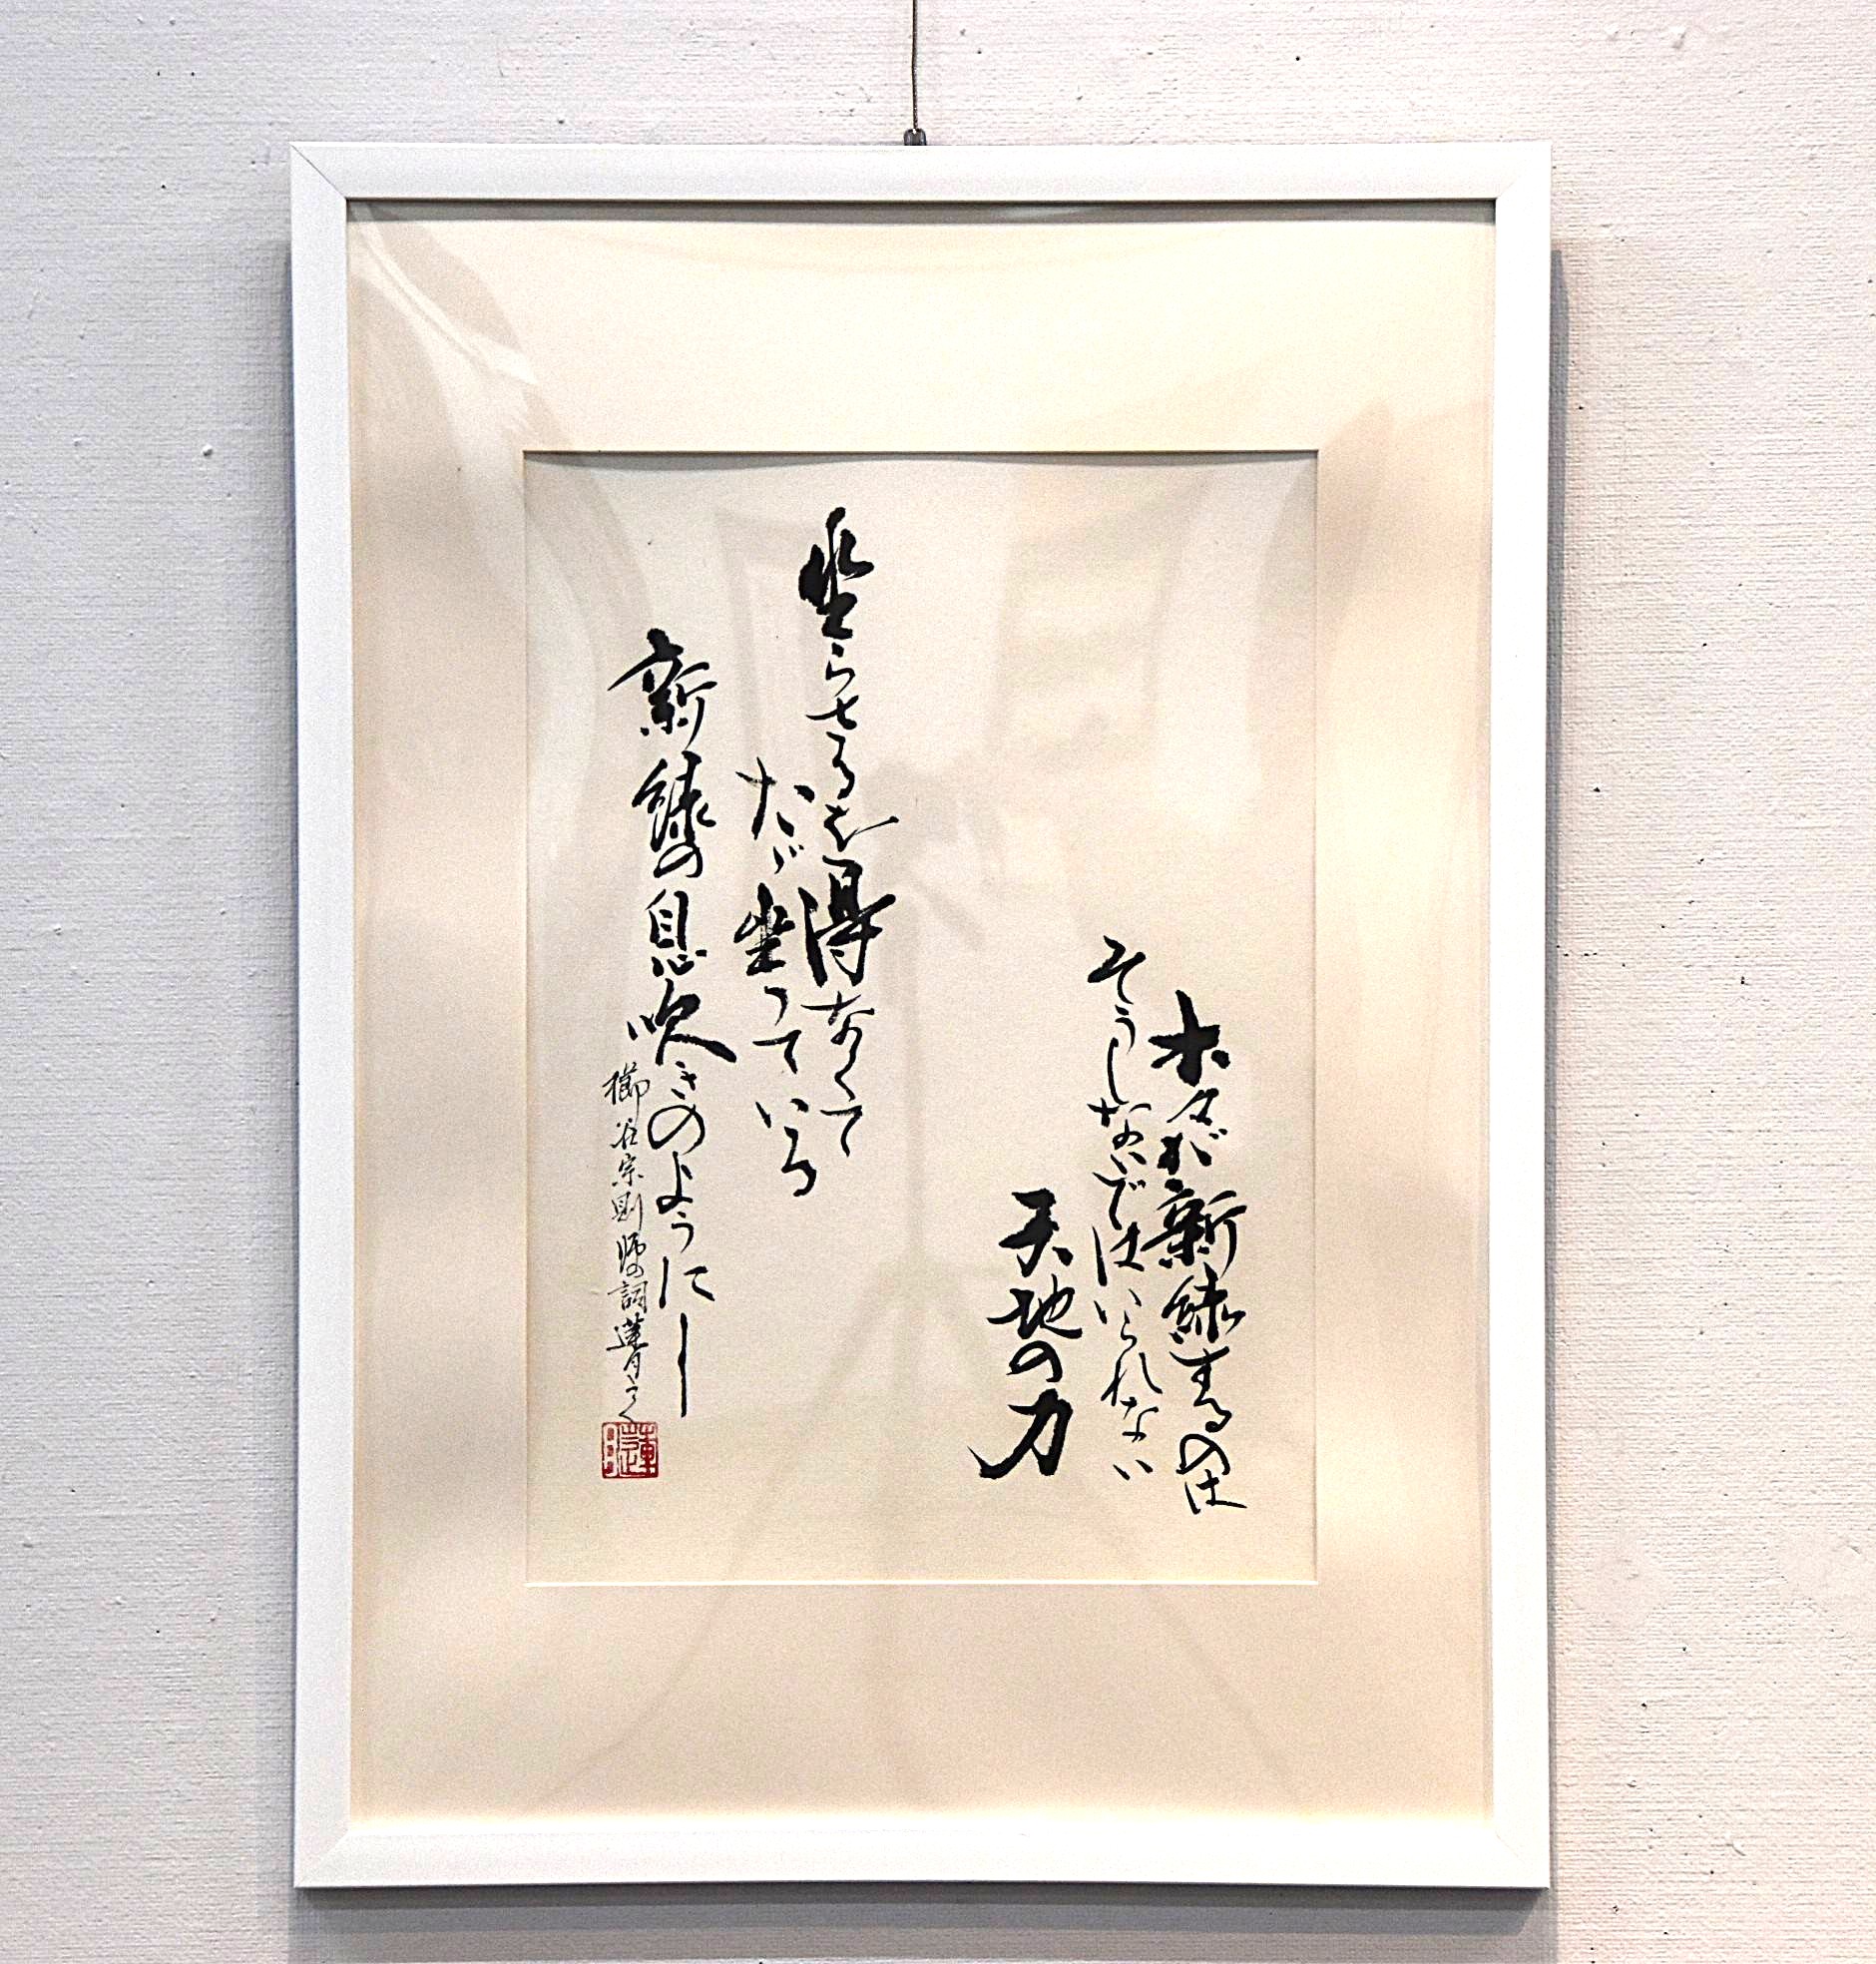 木々が新緑するのは
そうしないではいられない
天地の力
坐らざるを得なくて
ただ坐っている
新緑の息吹きのように
櫛谷宗則師の詞